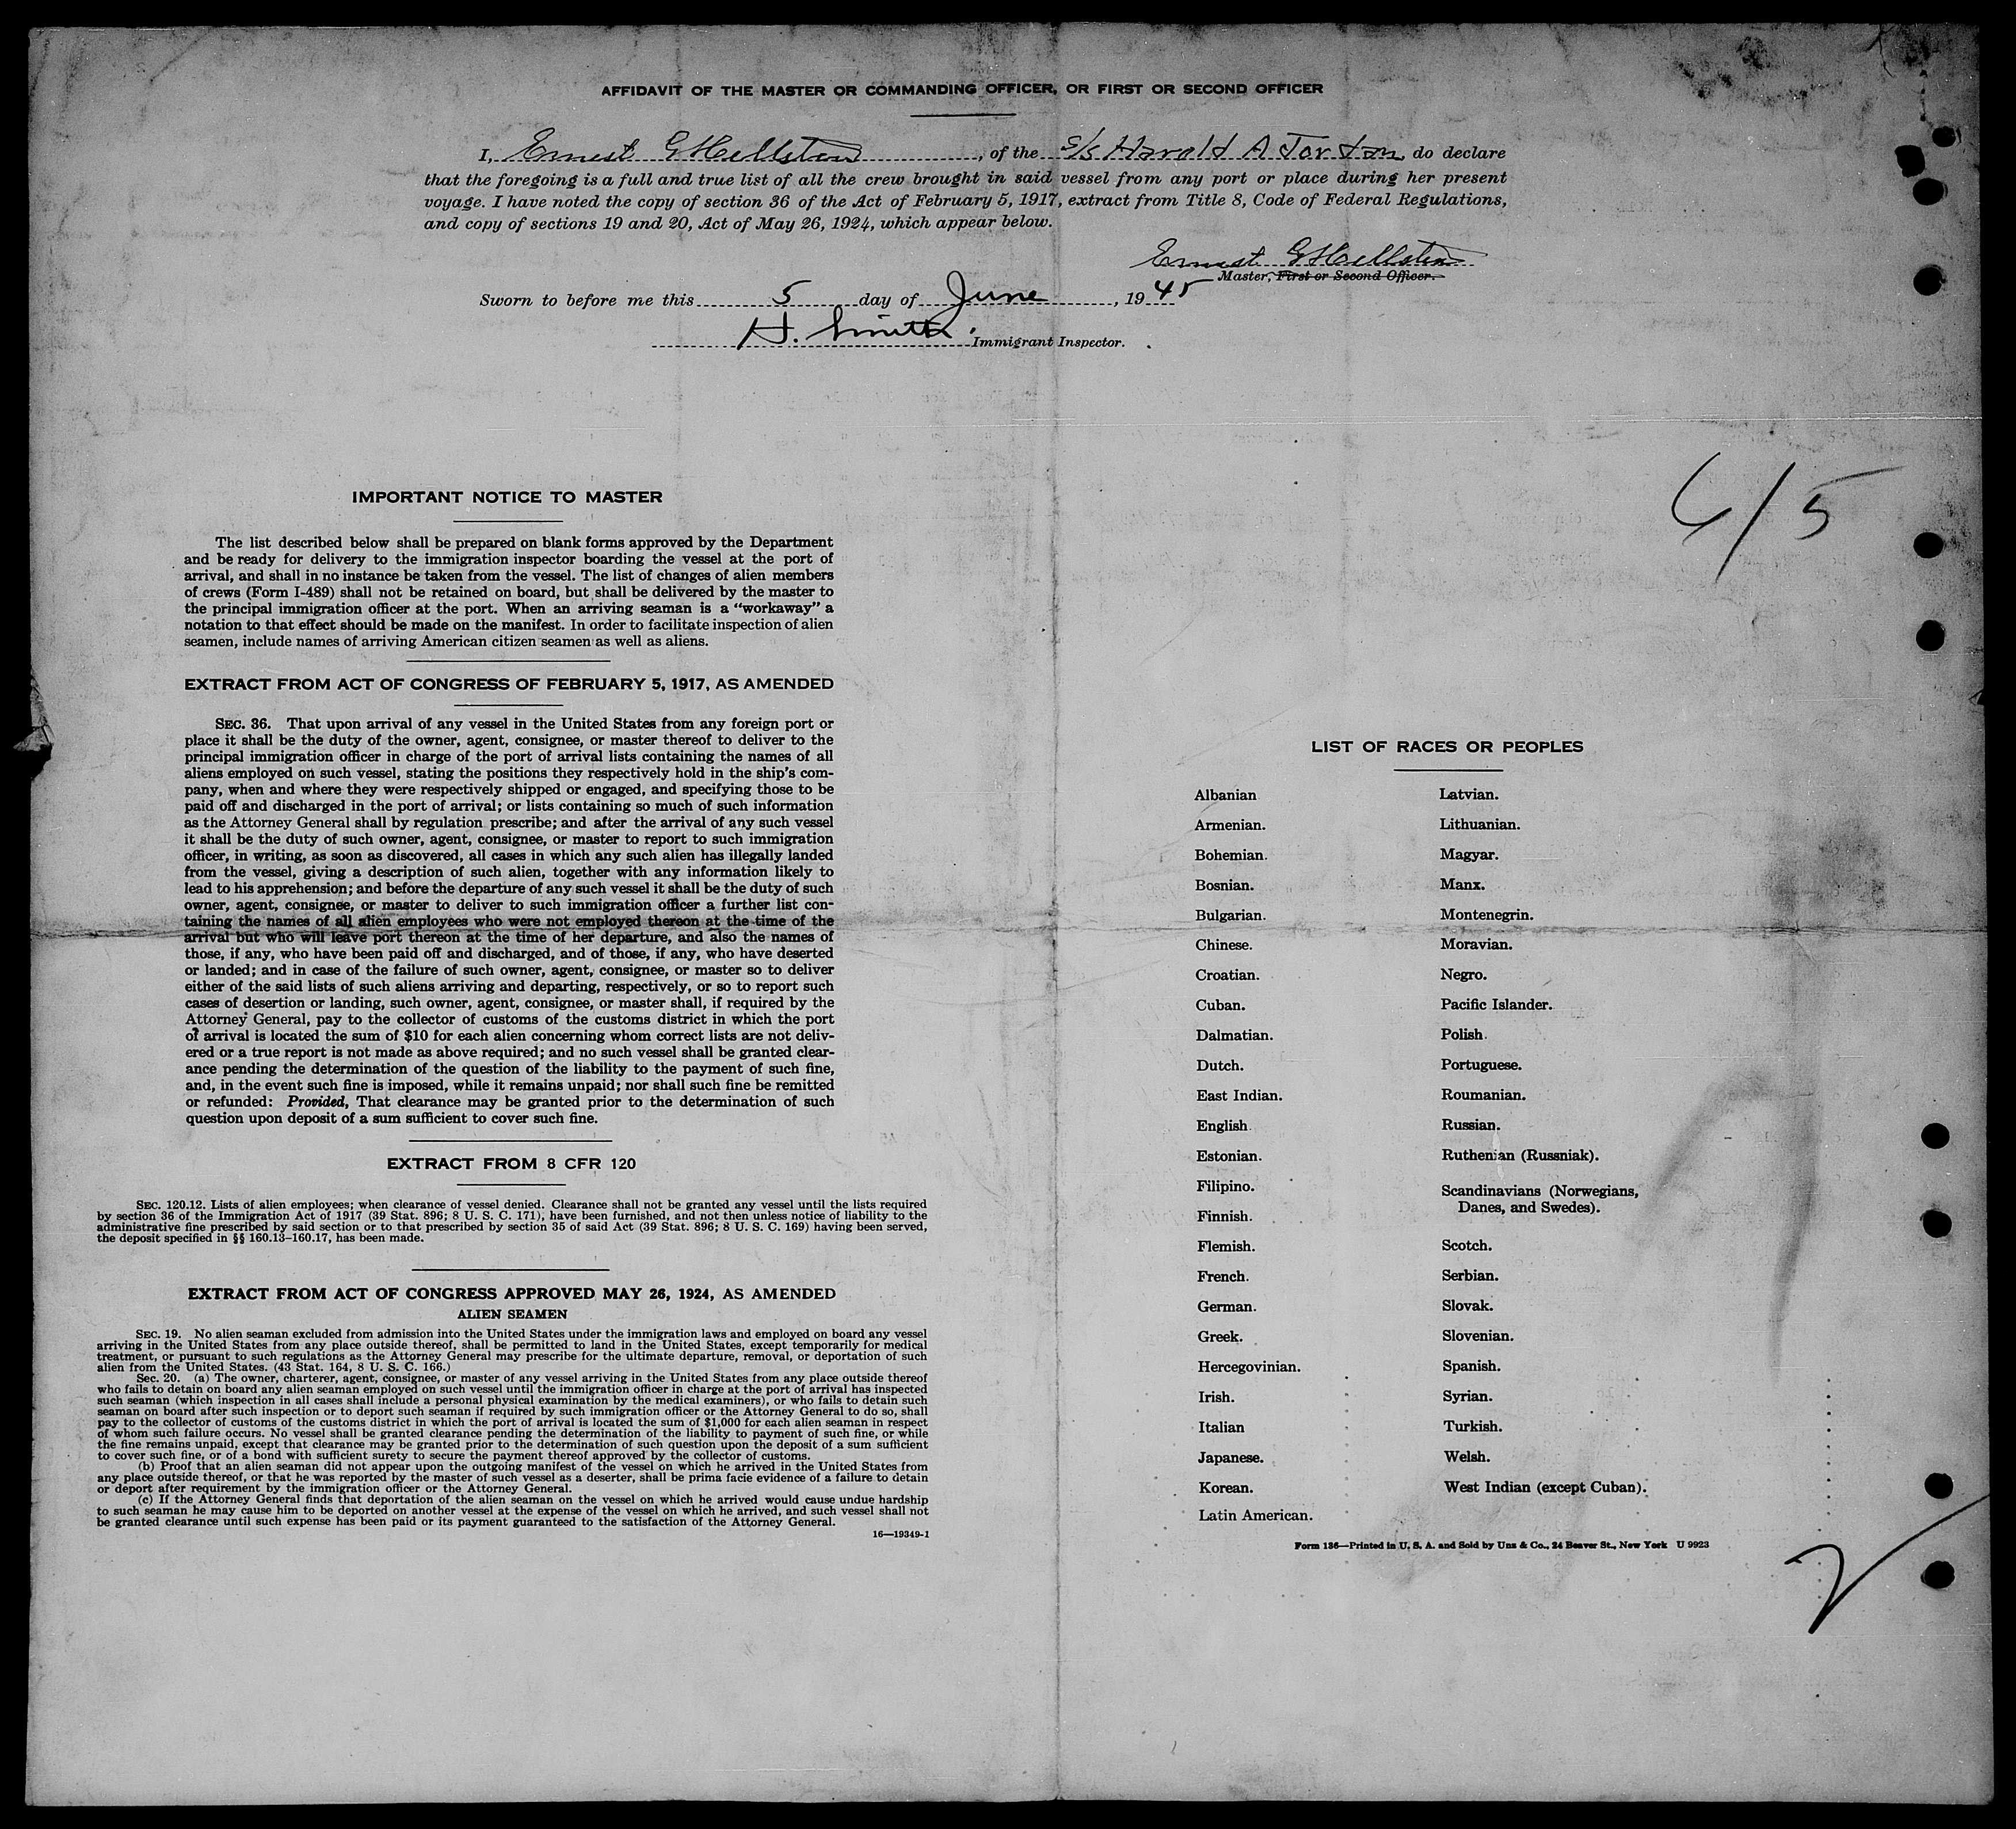 AFFIDAVIT OF THE MASTER OR COMMANDING OFFICER, OR FIRST OR SECOND OFFICER
I, Ernest G Hellsten, of the S/S Harold A Jordan, do declare
that the foregoing is a full and true list of all the crew brought in said vessel from any port or place during her present
voyage. I have noted the copy of section 36 of the Act of February 5, 1917, extract from Title 8, Code of Federal Regulations,
and copy of sections 19 and 20, Act of May 26, 1924, which appear below.
Ernest G Hellsten
Master, First or Second Officer.
Sworn to before me this 5 day of June, 1945
H. Smith. Immigrant Inspector.
6/5
IMPORTANT NOTICE TO MASTER
The list described below shall be prepared on blank forms approved by the Department
and be ready for delivery to the immigration inspector boarding the vessel at the port of
arrival, and shall in no instance be taken from the vessel. The list of changes of alien members
of crews (Form I-489) shall not be retained on board, but shall be delivered by the master to
the principal immigration officer at the port. When an arriving seaman is a "workaway" a
notation to that effect should be made on the manifest. In order to facilitate inspection of alien
seamen, include names of arriving American citizen seamen as well as aliens.
EXTRACT FROM ACT OF CONGRESS OF FEBRUARY 5, 1917, AS AMENDED
SEC. 36. That upon arrival of any vessel in the United States from any foreign port or
place it shall be the duty of the owner, agent, consignee, or master thereof to deliver to the
principal immigration officer in charge of the port of arrival lists containing the names of all
aliens employed on such vessel, stating the positions they respectively hold in the ship's com-
pany, when and where they were respectively shipped or engaged, and specifying those to be
paid off and discharged in the port of arrival; or lists containing so much of such information
as the Attorney General shall by regulation prescribe; and after the arrival of any such vessel
it shall be the duty of such owner, agent, consignee, or master to report to such immigration
officer, in writing, as soon as discovered, all cases in which any such alien has illegally landed
from the vessel, giving a description of such alien, together with any information likely to
lead to his apprehension; and before the departure of any such vessel it shall be the duty of such
owner, agent, consignee, or master to deliver to such immigration officer a further list con-
taining the names of all alien employees who were not employed thereon at the time of the
arrival but who will leave port thereon at the time of her departure, and also the names of
those, if any, who have been paid off and discharged, and of those, if any, who have deserted
or landed; and in case of the failure of such owner, agent, consignee, or master so to deliver
either of the said lists of such aliens arriving and departing, respectively, or so to report such
cases of desertion or landing, such owner, agent, consignee, or master shall, if required by the
Attorney General, pay to the collector of customs of the customs district in which the port
of arrival is located the sum of $10 for each alien concerning whom correct lists are not deliv-
ered or a true report is not made as above required; and no such vessel shall be granted clear-
ance pending the determination of the question of the liability to the payment of such fine,
and, in the event such fine is imposed, while it remains unpaid; nor shall such fine be remitted
or refunded: Provided, That clearance may be granted prior to the determination of such
question upon deposit of a sum sufficient to cover such fine.
EXTRACT FROM 8 CFR 120
SEC. 120.12. Lists of alien employees; when clearance of vessel denied. Clearance shall not be granted any vessel until the lists required
by section 36 of the Immigration Act of 1917 (39 Stat. 896; 8 U. S. C. 171), have been furnished, and not then unless notice of liability to the
administrative fine prescribed by said section or to that prescribed by section 35 of said Act (39 Stat. 896; 8 U. S. C. 169) having been served,
the deposit specified in §§ 160.13–160.17, has been made.
EXTRACT FROM ACT OF CONGRESS APPROVED MAY 26, 1924, AS AMENDED
ALIEN SEAMEN
SEC. 19. No alien seaman excluded from admission into the United States under the immigration laws and employed on board any vessel
arriving in the United States from any place outside thereof, shall be permitted to land in the United States, except temporarily for medical
treatment, or pursuant to such regulations as the Attorney General may prescribe for the ultimate departure, removal, or deportation of such
alien from the United States. (43 Stat. 164, 8 U. S. C. 166.)
Sec. 20. (a) The owner, charterer, agent, consignee, or master of any vessel arriving in the United States from any place outside thereof
who fails to detain on board any alien seaman employed on such vessel until the immigration officer in charge at the port of arrival has inspected
such seaman (which inspection in all cases shall include a personal physical examination by the medical examiners), or who fails to detain such
seaman on board after such inspection or to deport such seaman if required by such immigration officer or the Attorney General to do so, shall
pay to the collector of customs of the customs district in which the port of arrival is located the sum of $1,000 for each alien seaman in respect
of whom such failure occurs. No vessel shall be granted clearance pending the determination of the liability to payment of such fine, or while
the fine remains unpaid, except that clearance may be granted prior to the determination of such question upon the deposit of a sum sufficient
to cover such fine, or of a bond with sufficient surety to secure the payment thereof approved by the collector of customs.
(b) Proof that an alien seaman did not appear upon the outgoing manifest of the vessel on which he arrived in the United States from
any place outside thereof, or that he was reported by the master of such vessel as a deserter, shall be prima facie evidence of a failure to detain
or deport after requirement by the immigration officer or the Attorney General.
(c) If the Attorney General finds that deportation of the alien seaman on the vessel on which he arrived would cause undue hardship
to such seaman he may cause him to be deported on another vessel at the expense of the vessel on which he arrived, and such vessel shall not
be granted clearance until such expense has been paid or its payment guaranteed to the satisfaction of the Attorney General.
16—19349-1
LIST OF RACES OR PEOPLES
Albanian
Armenian.
Bohemian.
Bosnian.
Bulgarian.
Chinese.
Croatian.
Cuban.
Dalmatian.
Dutch.
East Indian.
English.
Estonian.
Filipino.
Finnish.
Flemish.
French.
German.
Greek.
Hercegovinian.
Irish.
Italian
Japanese.
Korean.
Latin American.
Latvian.
Lithuanian.
Magyar.
Manx.
Montenegrin.
Moravian.
Negro.
Pacific Islander.
Polish.
Portuguese.
Roumanian.
Russian.
Ruthenian (Russniak).
Scandinavians (Norwegians,
Danes, and Swedes).
Scotch.
Serbian.
Slovak.
Slovenian.
Spanish.
Syrian.
Turkish.
Welsh.
West Indian (except Cuban).
Form 136—Printed in U. S. A. and Sold by Unz & Co., 24 Beaver St., New York U 9923